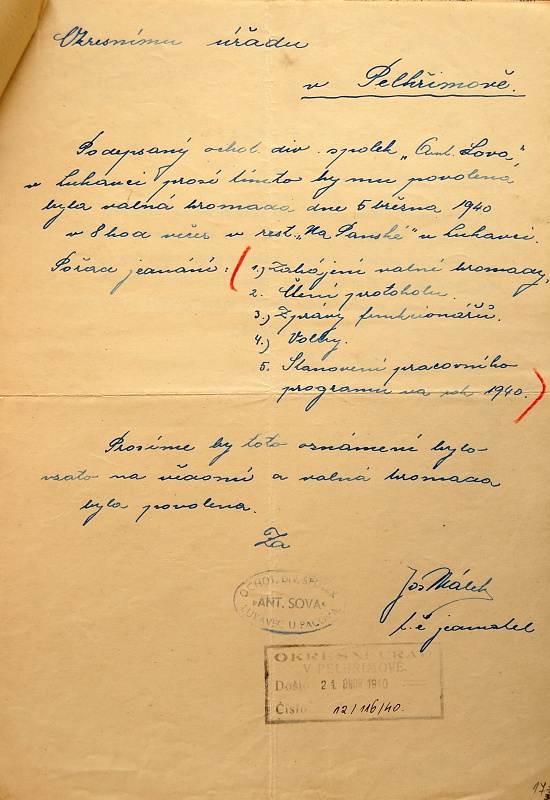 Okresnímu úřadu
v Pelhřimově.
Podepsaný ochot. div. spolek „Ant. Sova„
v Lukavci prosí tímto by mu povolena
byla valná hromada dne 5 března 1940
v 8 hod večer v rest. „Na Panské" v Lukavci.
Pořad jednání: 1.) Zahájení valné hromady,
2. Čtení protokolu.
3.) Zprávy funkcionářů.
4.) Volby.
5. Stanovení pracovního
programu na rok 1940.
Prosíme by toto oznámení bylo
vzato na vědomí a valná hromada
byla povolena.
Za
OCHOT. DIV. SPOLEK
»ANT. SOVA«
LUKAVEC U PACOVA
Jos
t. č. jednatel
OKRESNÍ ÚŘAD
V PELHŘIMOVĚ.
Došlo 21. ÚNOR 1940
Číslo 12/116/40.